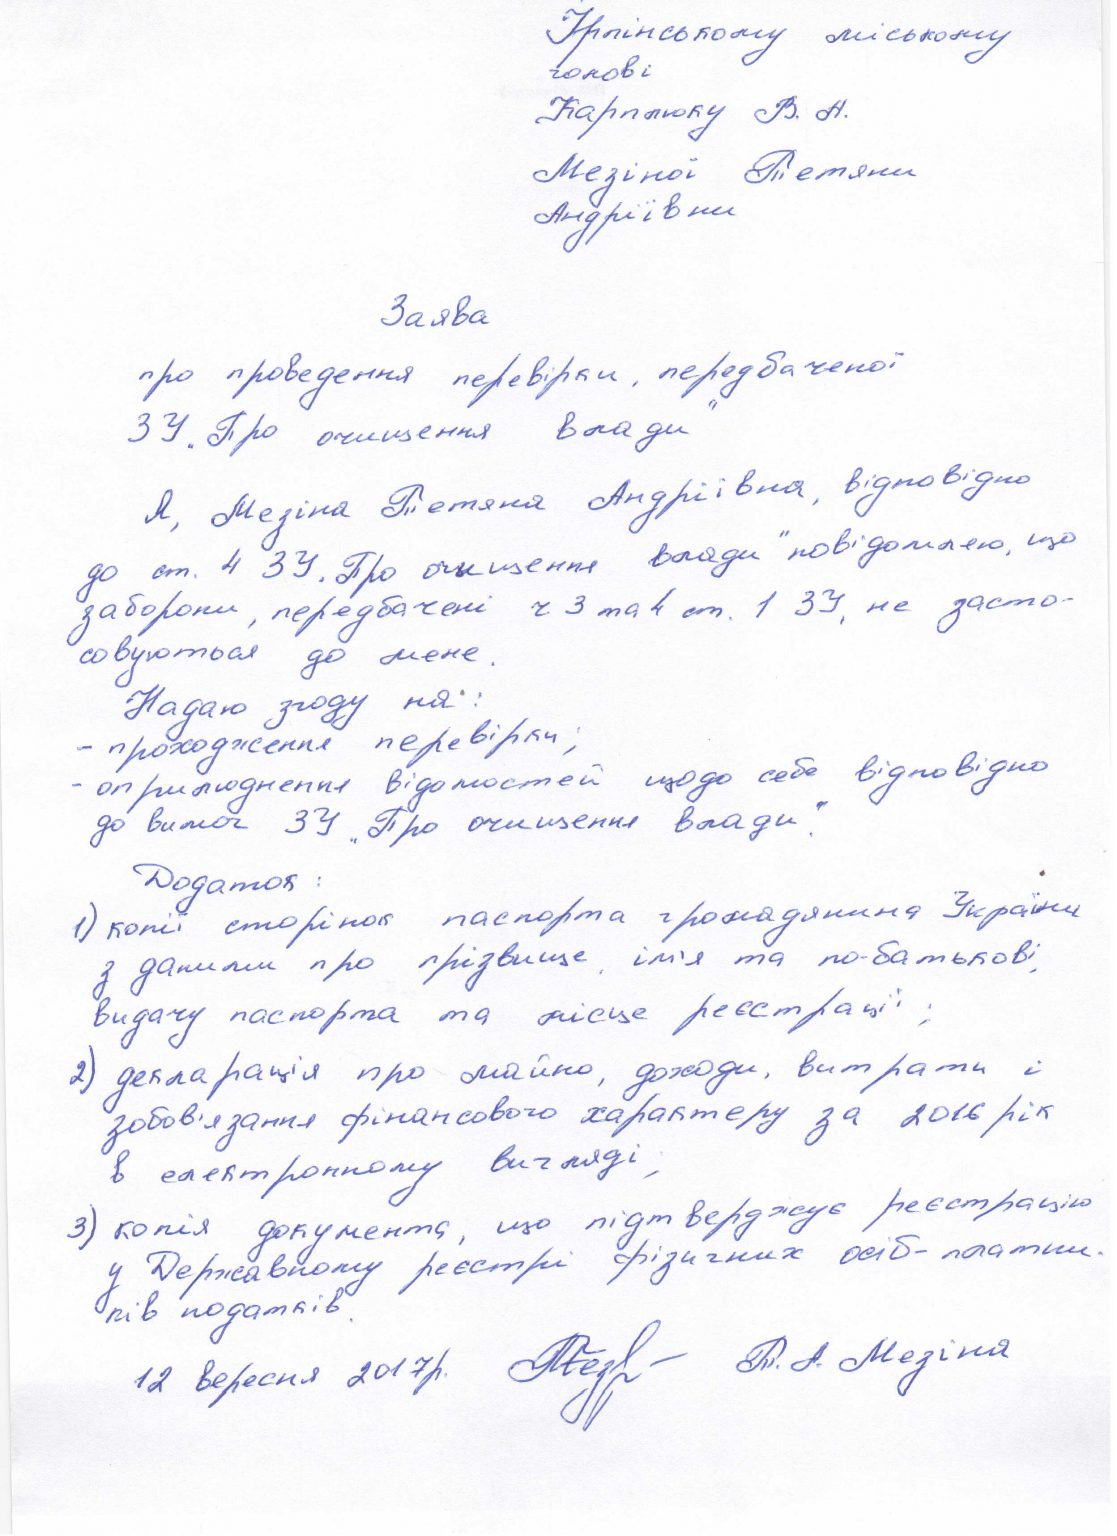 Ірпінському міському
голові
Карплюку В. А.
Мезіної Тетяни
Андріївни
Заява
про проведення перевірки, передбаченої
ЗУ „Про очищення влади"
Я, Мезіна Тетяна Андріївна, відповідно
до ст. 4 ЗУ „Про очищення влади" повідомляю, що
заборони, передбачені ч 3 та 4 ст. 1 ЗУ, не засто-
совуються до мене.
Надаю згоду на:
- проходження перевірки;
- оприлюднення відомостей щодо себе відповідно
до вимог ЗУ „Про очищення влади".
Додаток:
1) копії сторінок паспорта громадянина України
з даними про прізвище, ім'я та по-батькові,
видачу паспорта та місце реєстрації;
2) декларація про майно, доходи, витрати і
зобов'язання фінансового характеру за 2016 рік
в електронному вигляді;
3) копія документа, що підтверджує реєстрацію
у Державному реєстрі фізичних осіб-платни-
ків податків.
12 вересня 2017р. Т. А. Мезіна